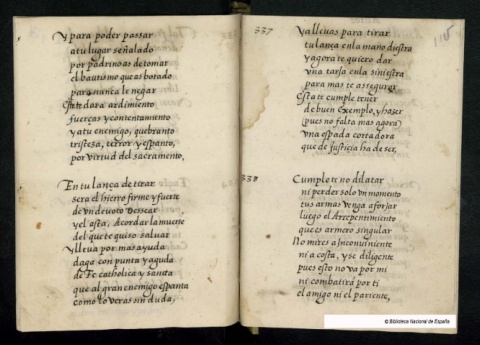 Y para poder passar
a tu lugar señalado
por padrino as de tomar
el bautismo que as botado
para nunca le negar
Este dara ardimento
fuerças y contentamento
y a tu enemigo, quebranto
tristeza, terror y espanto,
por virtud del sacramento,
En tu lança de tirar
sera el hierro firme y fuerte
de un devoto dessear
y el asta, Acordar la muerte
del que te quiso saluar
Y lleua por mas ayuda
daga con punta y aguda
de Fe catholica y sancta
que al gran enemigo espanta
como lo veras sin duda,
337
Ya lleuas para tirar
tu lança en la mano diestra
y agora te quiero dar
vna tarja en la siniestra
para mas te assegurar
Esta te cumple tener
de buen Exemplo, y hazer
(pues no falta mas agora)
vna espada cortadora
que de Justicia ha de ser,
338
Cumple te no dilatar
ni perder solo vn momento
tus armas venga aforjar
luego el Arrepentimiento
que es armero singular
No mires a Jnconuiniente
ni a costa, y se diligente
pues esto no va por mi
ni combatirà por ti
el amigo ni el pariente,
© Biblioteca Nacional de España